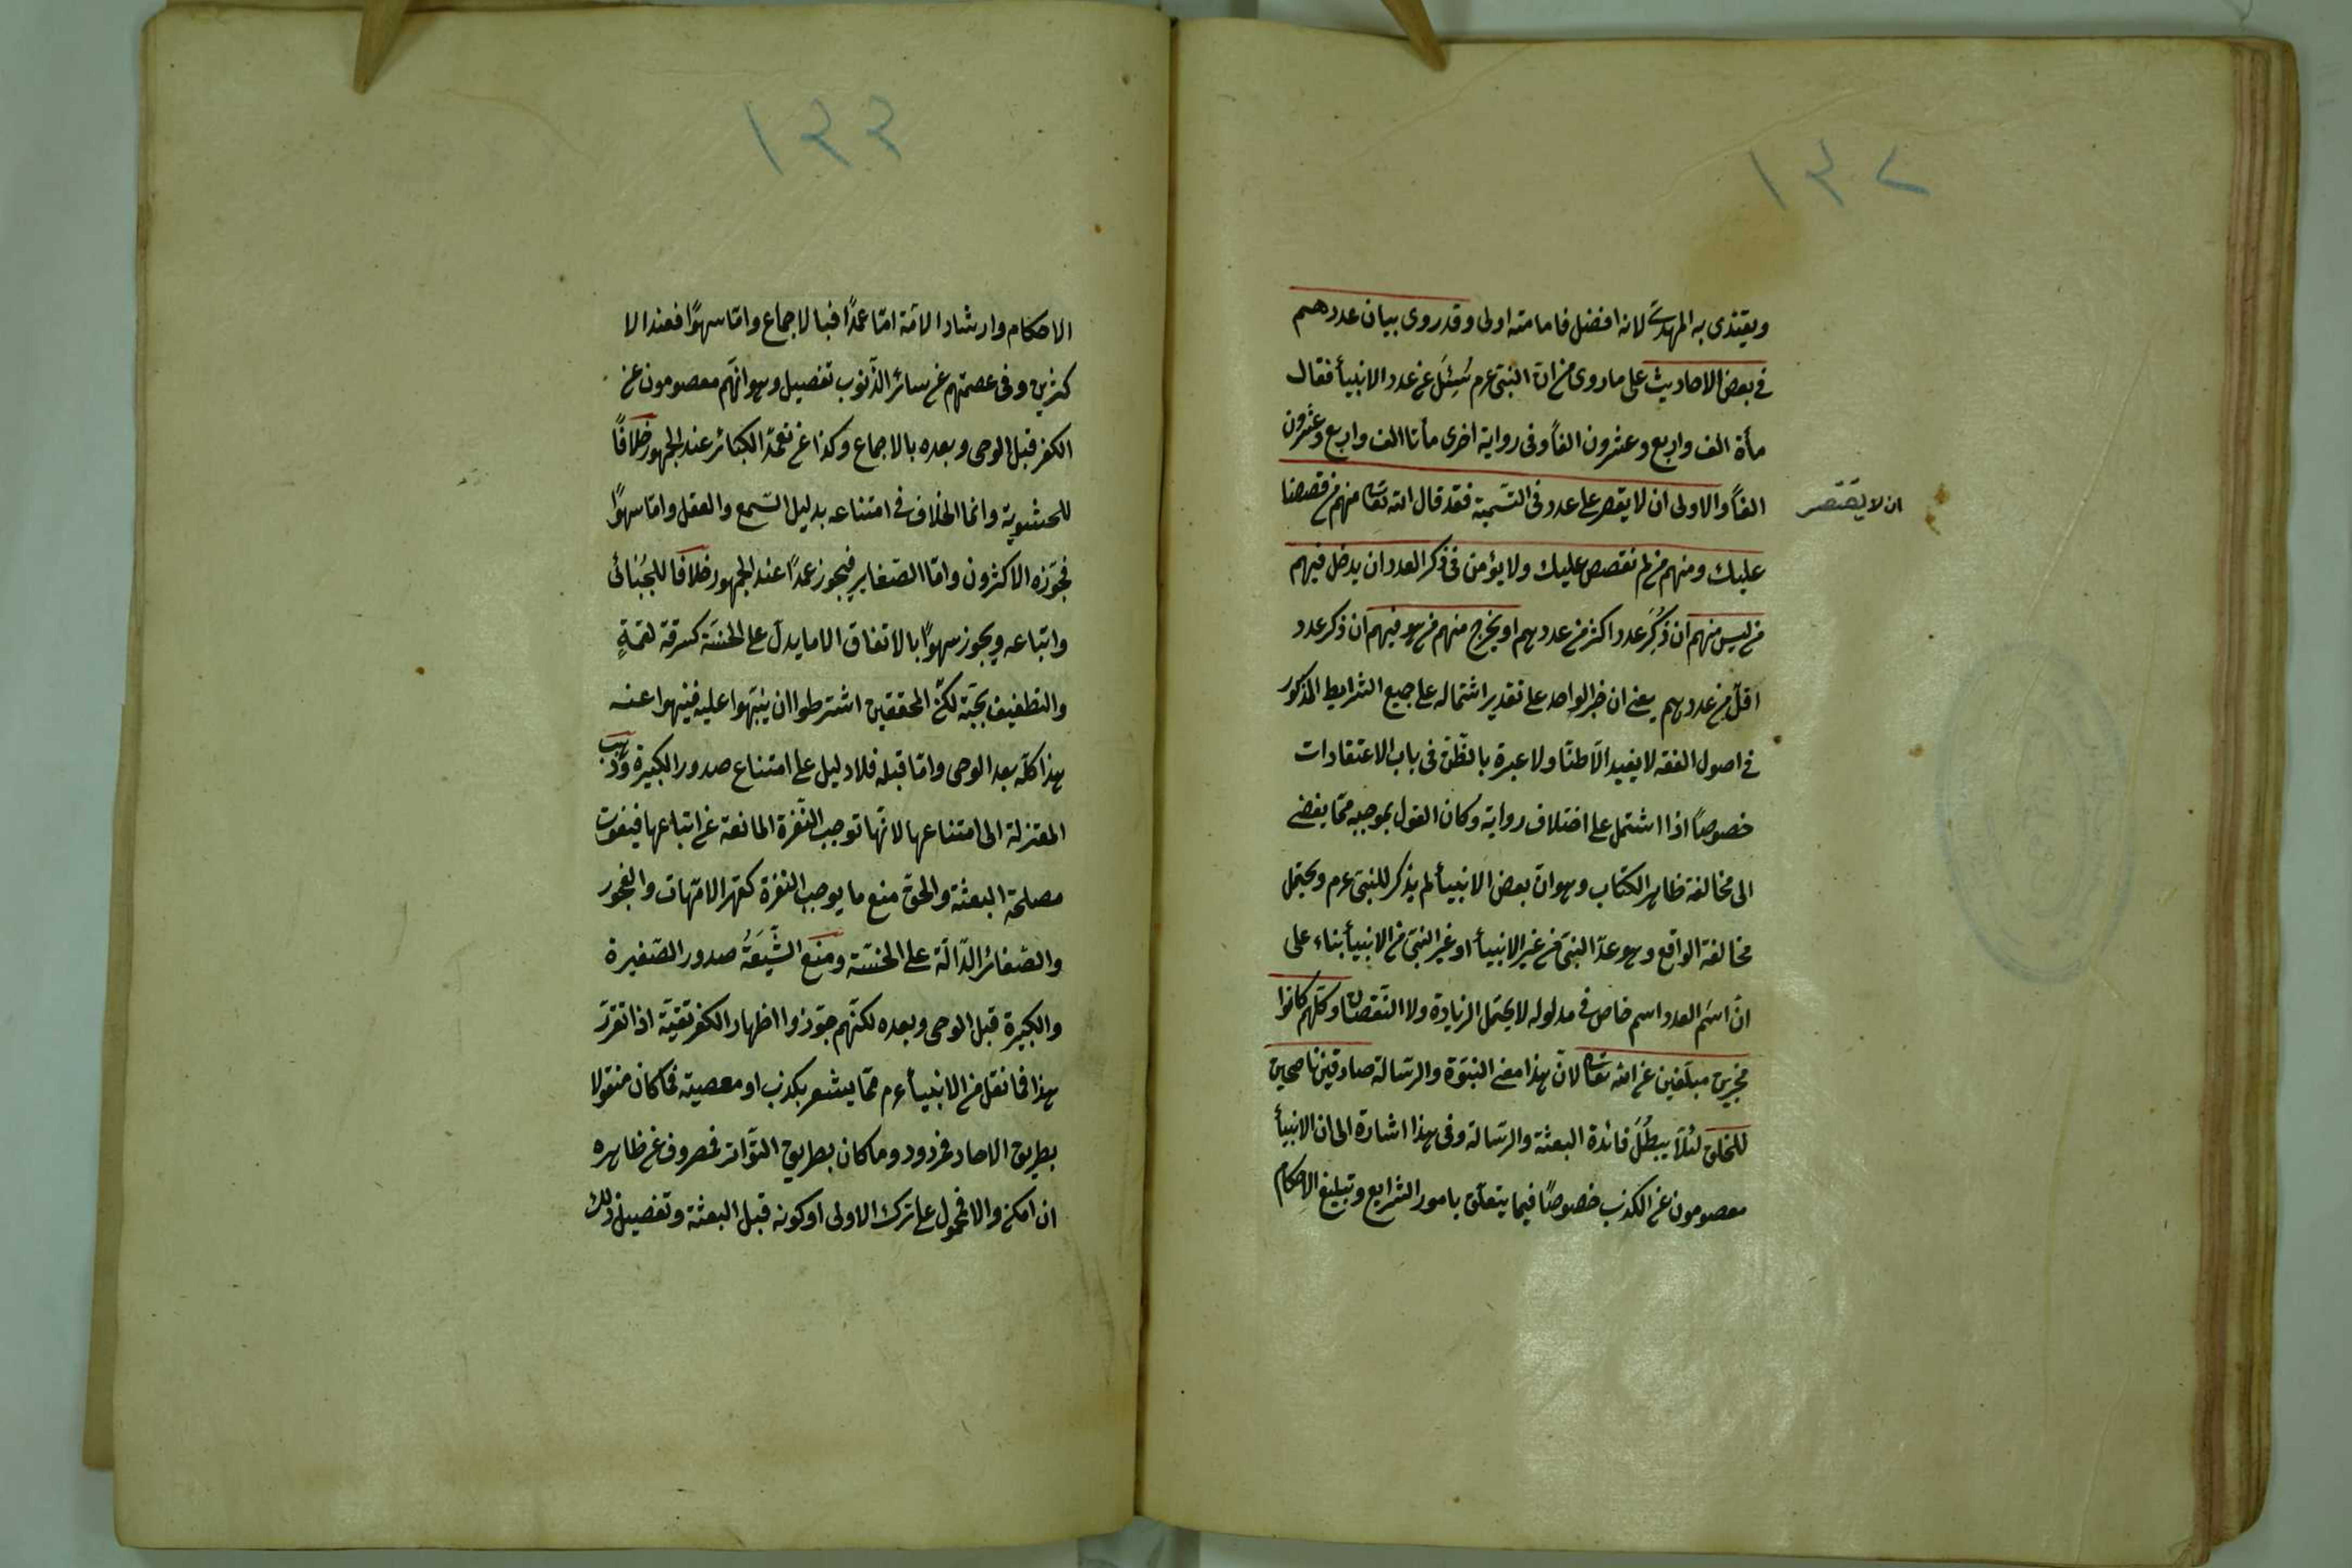 ١٣٢
ويقتدى به المهدى لانه افضل فامامته اولى وقد روى بيان عددهم
فى بعض الاحاديث على ما روى من ان النبى عم سُئِلَ عن عدد الانبيأ فقال
مأة الف واربع وعشرون الفاً وفى رواية اخرى مأتا الف واربع وعشرون
الفاً والاولى ان لا يقصر على عدد فى التسمية فقد قال الله تعالى منهم من قصصنا
ان لا يقتصر
عليك ومنهم من لم نقصص عليك ولا يؤمن فى ذكر العدد ان يدخل فيهم
من ليس منهم ان ذُكِرَ عدد اكثر من عددهم او يخرج منهم من هو فيهم ان ذكر عدد
اقلّ من عددهم يعنى ان خبر الواحد على تقدير اشتماله على جميع الشرايط المذكور
فى اصول الفقه لا يفيد الّا ظنّا ولا عبرة بالظّن فى باب الاعتقادات
خصوصاً اذا اشتمل على اختلاف رواية وكان القول بموجبه ممّا يفضى
الى مخالفة ظاهر الكتاب وهو انّ بعض الانبيأ لم يذكر للنبى عم ويحتمل
مخالفة الواقع وهو عدّ النبىّ من غير الانبيأ او غير النبى من الانبيأ بناء على
انّ اسْم العدد اسم خاص فى مدلوله لا يحتمل الزيادة ولا النّقصان وكلّهم كانوا
مخبرين مبلّغين عن الله تعالى لانّ هذا معنى النبّوة والرّسالة صادقين ناصحين
للخلق لئلّا يبطُلَ فائدة البعثة والرسالة وفى هذا اشارة الى ان الانبيأ
معصومون عن الكذب خصوصًا فيما يتعلّق بامور الشرايع وتبليغ الاحكام
١٣٣
الاحكام وارشاد الامّة امّا عمدًا فبالاجماع وامّا سهوًا فعند الا
كثرين وفى عصمتهم عن سائر الذّنوب تفصيل وهو انّهم معصومون عن
الكفر قبل الوحى وبعده بالاجماع وكذا عن تعمّد الكبائر عند الجمهور خلافًا
للحشويّة وانما الخلاف فى امتناعه بدليل السّمع والعقل وامّا سهوًا
فجوّزه الاكثرون وامّا الصّغاير فيجوز عمدًا عند الجمهور خلافًا للجُبّائى
واتباعه ويجوز سهوًا بالاتفاق الا ما يدلّ على الخسّة كسرقة لقمةٍ
والتطفيف بحبّة لكنّ المحققين اشترطوا ان ينبّهوا عليه فينهوا عنه
هذا كلّه بعد الوحى وامّا قبله فلا دليل على امتناع صدور الكبيرة وذهب
المعتزلة الى امتناعها لانّها توجب النّفرة المانعة عن اتباعها فيفوت
مصلحة البعثة والحق منع ما يوجب النفرة كقهر الامّهات والفجور
والصّغائر الدّالّة على الخسّة ومنع الشّيعَةُ صدور الصّغيرة
والكبيرة قبل الوحى وبعده لكنّهم جوّزوا اظهار الكفر تقيّة اذا تقرّر
هذا فما نقل من الانبيأ عم ممّا يشعر بكذب او معصية فما كان منقولا
بطريق الاحاد فمردود وما كان بطريق التّواتر فمصروف عن ظاهره
ان امكن والا فمحمول على ترك الاولى او كونه قبل البعثة وتفصيل ذلك